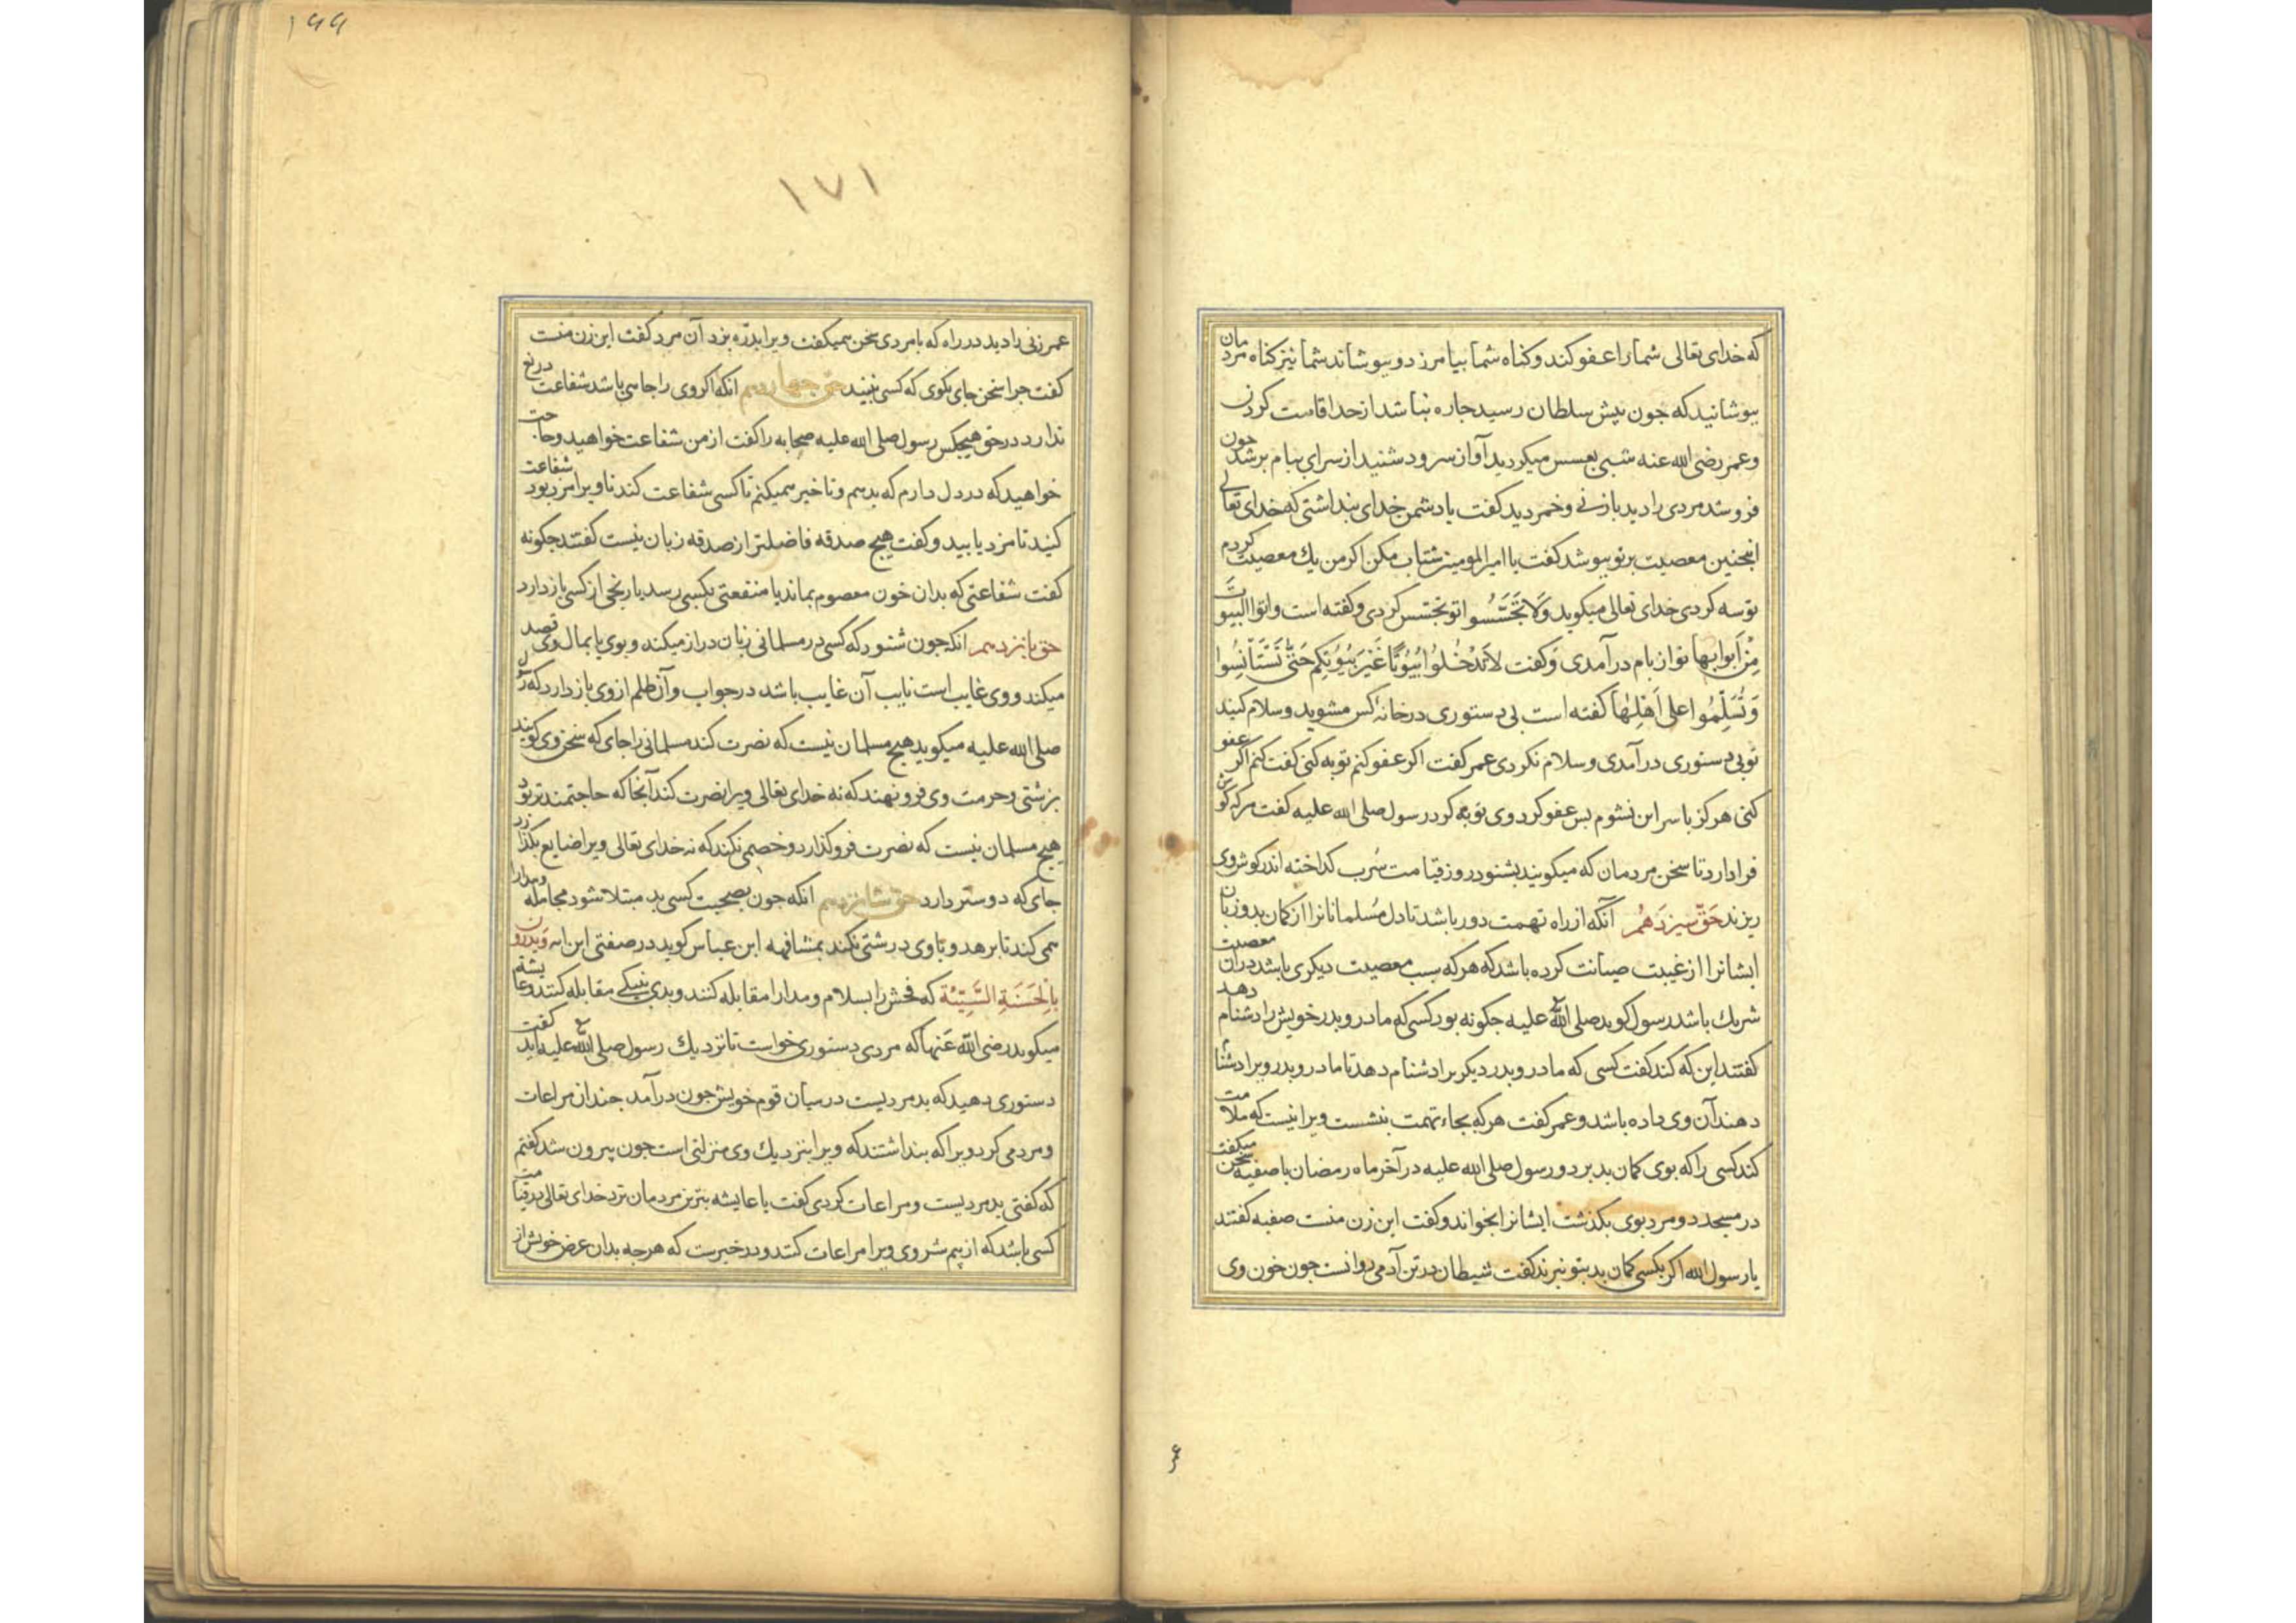 که خدای تعالی شما را عفو کند و کناه شما بیامرزد و بپوشاند شما نیز کناه مردمان
بپوشانید که جون پیش سلطان رسید جاره نباشد از حد اقامت کردن
و عمر رضی الله عنه شبی بعسس میکردید آواز سرود شنید از سرای ببام بر شد جون
فرو شد مردی را دید با زنی و خمر دید کفت یا دشمن خدای بنداشتی که خدای تعالی
اینجنین معصیت بر تو بپوشد کفت یا امیرالمومنین شتاب مکن اکر من یك معصیت کردم
تو سه کردی خدای تعالی میکوید وَلَا تَجَسَّسُوا تو تجسس کردی و کفته است واتوا البیوت
مِنْ اَبوابها تو از بام در آمدی وَکفت لَا تَدْخُلُوا بُیُوتًا غَیْرَ بُیُوتِکُم حَتّٰی تَسْتَاْنِسُوا
وَتُسَلِّمُوا علی اَهْلِهٰا کفته است بی دستوری در خانهٔ کس مشوید و سلام کنید
تو بی دستوری در آمدی و سلام نکردی عمر کفت اکر عفو کنم توبه کنی کفت کنم اکر عفو
کنی هرکز با سر این نشوم بس عفو کرد وی توبه کرد رسول صلی الله علیه کفت هرکه کوش
فرا دارد تا سخن مردمان که میکویند بشنود روز قیامت سُرب کداخته اندر کوش وی
ریزند حَقّ سیزدَهُم آنکه از راه تهمت دور باشد تا دل مُسلمانانرا از کمان بد و زبان
ایشانرا از غیبت صیانت کرده باشد که هرکه سبب معصیت دیکری باشد در آن معصیت
شریك باشد رسول کوید صلی الله علیه جکونه بود کسی که مادر و بدر خویش را دشنام دهد
کفتند این که کند کفت کسی که مادر و بدر دیکریرا دشنام دهد تا مادر و بدر ویرا دشنام
دهند آن وی داده باشد و عمر کفت هرکه بجاء تهمت بنشست ویرا نیست که ملامت
کند کسی را که بوی کمان بد برد و رسول صلی الله علیه در آخر ماه رمضان با صفیه سخن میکفت
در مسجد دو مرد بوی بکذشت ایشانرا بخواند و کفت این زن منست صفیه کفتند
یا رسول الله اکر بکسی کمان بد بتو نبرند کفت شیطان در تن آدمی روانست جون خون وی
عمر
۱۶۶
۱۷۱
عمر زنی را دید در راه که با مردی سخن همیکفت ویرا بدرّه بزد آن مرد کفت این زن منست
کفت جرا سخن جای نکوی که کسی نبیند حق جهاردهم آنکه اکر وی را جاهی باشد شفاعت دریغ
ندارد در حق هیجکس رسول صلی الله علیه صحابه را کفت از من شفاعت خواهید و حاجت
خواهید که در دل دارم که بدهم و تاخیر همیکنم تا کسی شفاعت کند تا ویرا مزد بود شفاعت
کنید تا مزد یابید و کفت هیج صدقه فاضلتر از صدقه زبان نیست کفتند جکونه
کفت شفاعتی که بدان خون معصوم بماند یا منفعتی بکسی رسد یا رنجی از کسی باز دارد
حق بانزدهم انکه جون شنود که کسی در مسلمانی زبان دراز میکند و بوی یا بمال وی قصد
میکند و وی غایب است نایب آن غایب باشد در جواب و آن ظلم از وی باز دارد که رسول
صلی الله علیه میکوید هیج مسلمان نیست که نصرت کند مسلمانی را جای که سخن وی کویند
بزشتی و حرمت وی فرو نهند که نه خدای تعالی ویرا نصرت کند آنجا که حاجتمندتر بود
هیج مسلمان نیست که نصرت فرو کذارد و خصمی نکند که نه خدای تعالی ویرا ضایع بکذارد
جای که دوستر دارد حق شانزدهم انکه جون بصحبت کسی بد مبتلا شود مجامله و مدارا
می کند تا برهد و با وی درشتی نکند بمشافهه ابن عباس کوید در صفتی این ایه وَیَدْرَؤُن
بِالْحَسَنَةِ السَّیِّئَة که فحش را بسلام و مدارا مقابله کنند و بدی بنیکی مقابله کنند و عایشه
میکوید رضی الله عَنها که مردی دستوری خواست تا نزدیك رسول صلی الله علیه آید کفت
دستوری دهید که بد مردیست در میان قوم خویش جون در آمد جندان مراعات
و مردمی کرد ویرا که بنداشتند که ویرا بنزدیك وی منزلتی است جون بیرون شد کفتم
که کفتی بد مردیست و مراعات کردی کفت یا عایشه بترین مردمان نزد خدای تعالی بقیامت
کسی باشد که از بیم شر وی ویرا مراعات کنند و در خبرست که هرجه بدان عرض خویش از